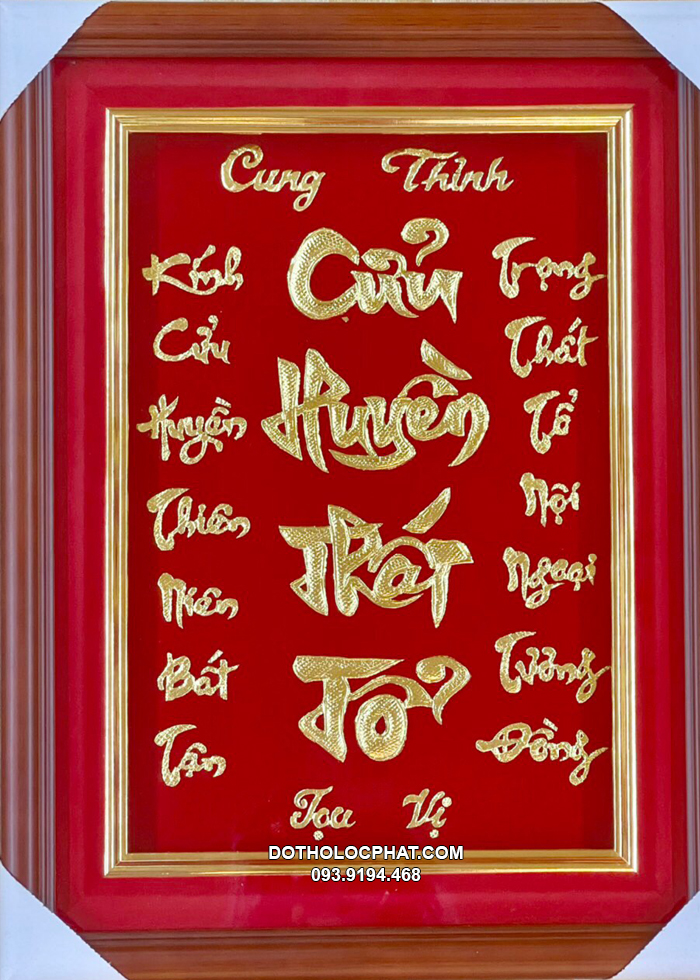 Cung Thỉnh
Cửu
Huyền
Thất
Tổ
Kính
Cửu
Huyền
Thiên
Niên
Bát
Tận
Trọng
Thất
Tổ
Nội
Ngoại
Tưởng
Đồng
Tọa Vị
DOTHOLOCPHAT.COM
093.9194.468